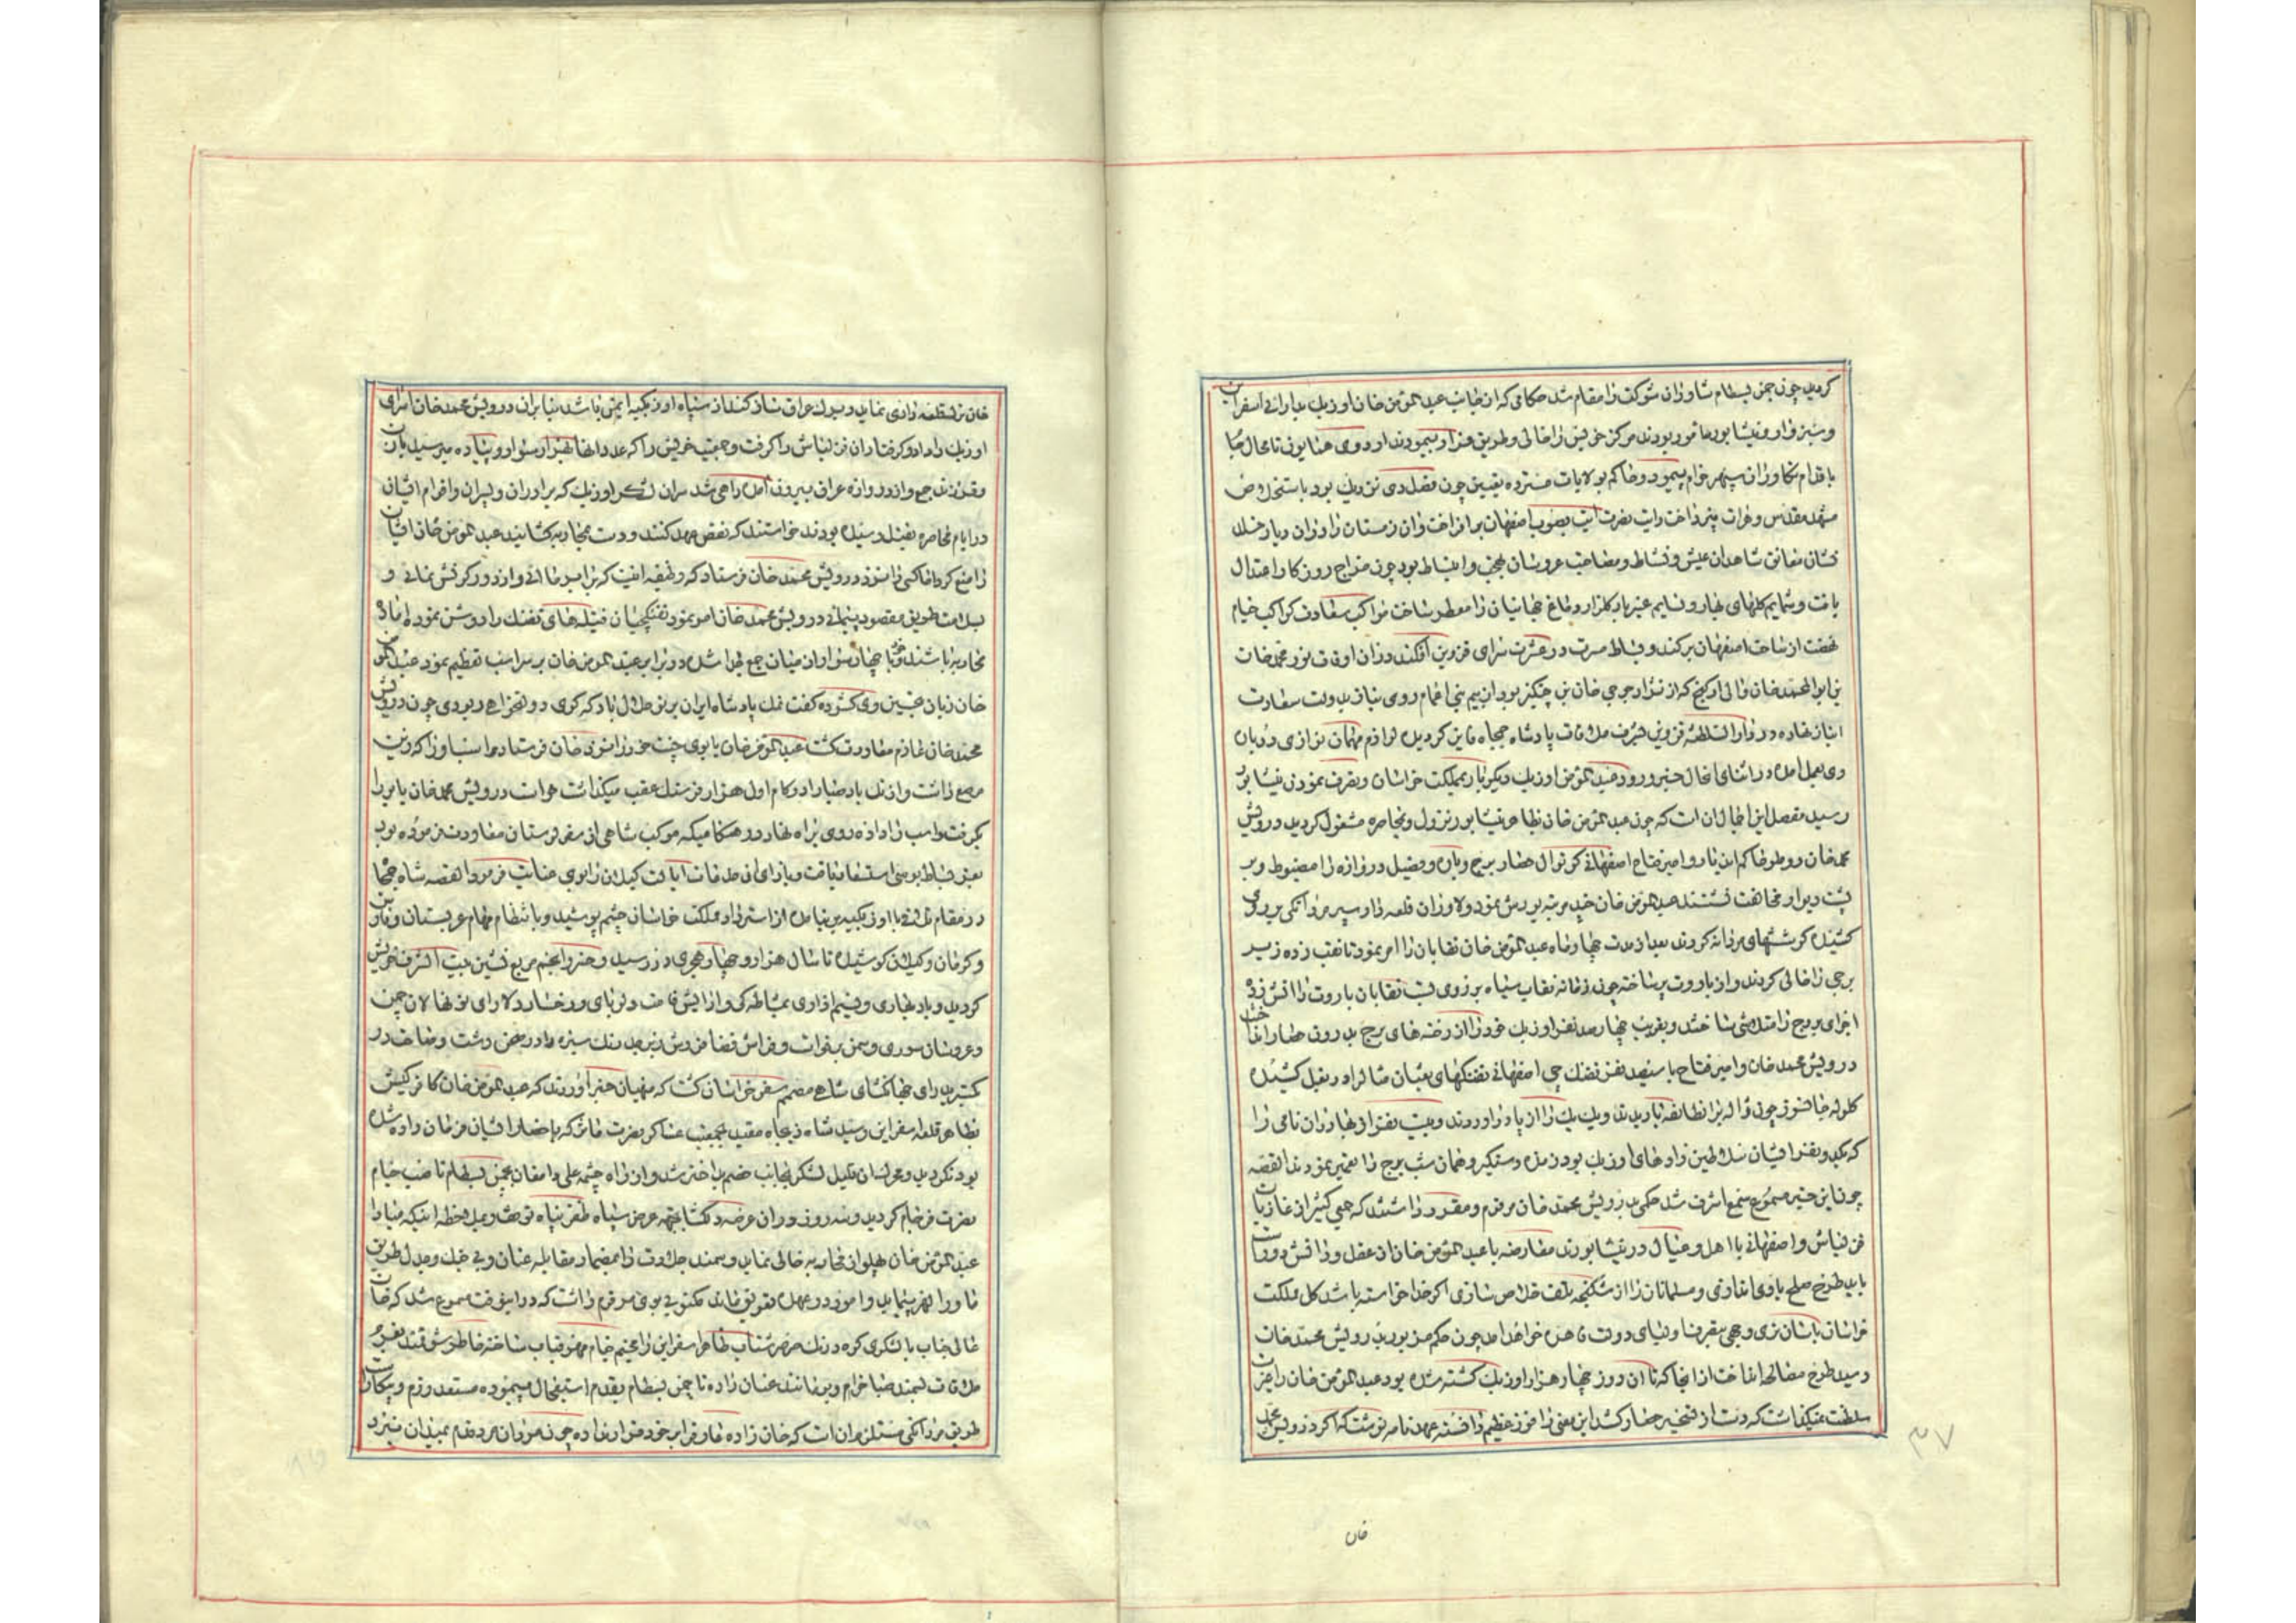 کردید چون چمن بسطام شاوران شوکت را مقام شد حکامی که از جانب عبدالمؤمن خان اوزبک بدارائی اسفراین
و سبزوار و نیشابور مامور بودند مرکز خویش را خالی و طریق فرار پیمودند اردوی همایونی تا محال جا
باقدام تکاوران سپهر خرام پیمود و حاکم بولایات مسترده تعیین چون فصل دی نزدیک بود باستخلاص
مشهد مقدس و هرات نپرداخت رایت نصرت آیت بصوب اصفهان برافراخت و ان زمستان را دران دیار خلد
نشان معانق شاهدان عیش و نشاط و مصاحب عروسان بهجت و انبساط بود چون مزاج روزکار اعتدال
یافت و شمایم کلهای بهار و نسایم عنبربار کلزار دماغ جهانیان را معطر ساخت مواکب سعادت کواکب خیام
نهضت از ساحت اصفهان برکند و بساط مسرت در عشرت سرای قزوین افکند دران اوقات نور محمد خان
بن ابوالمحمد خان والی اورکنج که از نژاد جوجی خان بن چنکیز بود از بیم بنی اعمام روی نیاز بدولت سعادت
انباز نهاده در دارالسلطنه قزوین بشرف ملاقات پادشاه جمجاه فایز کردیده لوازم مهمان نوازی دربان
وی بعمل امد در اثنای انحال خبر ورود عبدالمؤمن اوزبک دیکر بار بمملکت خراسان و تصرف نمودن نیشابور
رسید مفصل این اجمال ان است که چون عبدالمؤمن خان بظاهر نیشابور نزول و بمحاصره مشغول کردید درویش
محمد خان روملو حاکم ان دیار و امیر فتاح اصفهانی کوتوال حصار برج و باره و فصیل دروازه را مضبوط و بر
پشت دیوار مخالفت نشستند عبدالمؤمن خان چند مرتبه یورش نمود دلاوران قلعه دار سپر مردانکی بر روی
کشیده کوششهای مردانه کردند بعد از مدت چهار ماه عبدالمؤمن خان نقابان را امر نمود تا نقب زده زیر
برجی را خالی کردند و از باروت پر ساخته چون زمانه نقاب سیاه بر روی بست نقابان باروت را اتش زده
اجزای برج را متلاشی ساختند و بقریب چهارصد نفر اوزبک خود را از رخنه های برج بدرون حصار انداختند
درویش محمد خان و امیر فتاح با سیصد نفر تفنکچی اصفهانی تفنکهای ثعبان مثال را در بغل کشیده
کلوله جانسوز چون ژاله بران طائفه بارید ند و یک یک را از پا دراوردند و بیست نفر از بهادران نامی را
که یکدو نفر ازیشان سلاطین زادهای اوزبک بود زنده دستکیر و همان شب برج را تعمیر نمودند القصه
چون این خبر مسموع سمع اشرف شد حکمی بدرویش محمد خان مرقوم و مقرر داشتند که جمعی کثیر از غازیان
قزلباش و اصفهانی با اهل و عیال در نیشابورند معارضه با عبدالمؤمن خان از عقل و دانش دور است
باید طرح صلح با وی اندازی و مسلمانان را از شکنجه تلف خلاص سازی اکر خدا خواسته باشد کل مملکت
خراسان باسان تری وجهی بتصرف اولیای دولت قاهره خواهد امد چون حکم مزبور بدرویش محمد خان
رسید طرح مصالحه انداخت از انجا که تا ان روز چهار هزار اوزبک کشته شده بود عبدالمؤمن خان را عزت
سلطنت نمیکذاشت که دست از تسخیر حصار کشد این معنی را فوز عظیم دانسته عهدنامه نوشت که اکر درویش محمد
خان
خان ترک قلعه داری نماید و بیورک عراق ساز کند از سپاه اوزبکیه ایمن باشد بنابران درویش محمد خان اسرای
اوزبک را داد و کرفتاران قزلباش را کرفت و جمعیت خویش را که عدد انها بهزار سوار و پیاده میرسید بان
و بنه جمع و از دروازه عراق بیرون امده راهی شد سران لشکر اوزبک که برادران و پسران و اقوام ایشان
در ایام محاصره بقتل رسیده بودند خواستند که نقض عهد کنند و دست بمحاربه کشایند عبدالمؤمن خان ایشان
را منع کرد اما کسی را نزد درویش محمد خان فرستاد که وظیفه انست که برابر ما ائی و از دور کرنش نمائی و
بسلامت طریق مقصود پیمائی درویش محمد خان امر نمود تفنکچیان فتیله های تفنک را روشن نموده اماده
محاربه باشند و خود با چهار سوار از میان جمع جدا شده در برابر عبدالمؤمن خان بر سر اسب تعظیم نمود عبدالمؤمن
خان زبان بتحسین وی کشوده کفت نمک پادشاه ایران بر تو حلال باد که کوی دولتخواهی ربودی چون درویش
محمد خان عازم معاودت کشت عبدالمؤمن خان یابوی جنت خود را نزد خان فرستاد و اسب او را که زین
مرصع داشت و از تک باد صبا را در کام اول هزار فرسنک عقب میکذاشت خواست درویش محمد خان یابو را
بکرفت و اسب را داد و روی براه نهاد در هنکامیکه موکب شاهی از سفر لرستان معاودت نموده بود
بعز بساط بوسی استسعاد یافت و بازای ان خدمات ایالت کیلان را بوی عنایت فرمود القصه شاه جمجاه
در مقام تلافی با اوزبکیه برنیامده از استرداد مملکت خراسان چشم پوشید و بانتظام مهام عربستان و فارس
و کرمان و کیلان کوشیده تا سال هزار و چهار هجری در رسید و خسرو انجم مربع نشین بیت الشرف خویش
کردید و باد بهاری و نسیم اذاری بمشاطه کی و ارایش قامت دلربای و رخسار دلارای نونهالان چمن
و عروسان سوری و سمن پرداخت و فراش قضا فرش زبرجد رنک سبزه را در صحن دشت و ساحت در
کسترید رای جهانکشای شاهی مصمم سفر خراسان کشت که منهیان خبر اوردند که عبدالمؤمن خان کافر کیش
بظاهر قلعه اسفراین رسید شاه ذیجاه مقید بجمعیت عساکر نصرت ماثر که باحضار ایشان فرمان داده شده
بود نکردید و معدودی قلیل لشکر بجانب خصم بداختر شد و از راه چشمه علی دامغان بچمن بسطام تا نصب خیام
نصرت فرجام کردید و سه روز دران عرصه دلکشا بجهه عرض سپاه ظفر پناه توقف و بملاحظه اینکه مبادا
عبدالمؤمن خان پهلو از محاربه خالی نماید و سمند جلادت را بمضمار مقابله عنان و بی جنک و جدل طریق
ماوراءالنهر پیماید و امروز در عهده تعویق ماند مکتوبی بوی مرقوم داشت که در اینوقت مسموع شد که خان
عالی جناب با لشکری کوه درنک صرصر شتاب ظاهر اسفراین را مخیم خیام مهر قباب ساخته خاطر شوقمند بعزم
ملاقات سمند صبا خرام و برق مانند عنان داده تا چمن بسطام بقدم استعجال میپیموده مستعد رزم و پیکار
طریق مردانکی مستلزم ان است که خان زاده عار فرار بر خود قرار نداده چون مردان مرد قدم بمیدان نبرد